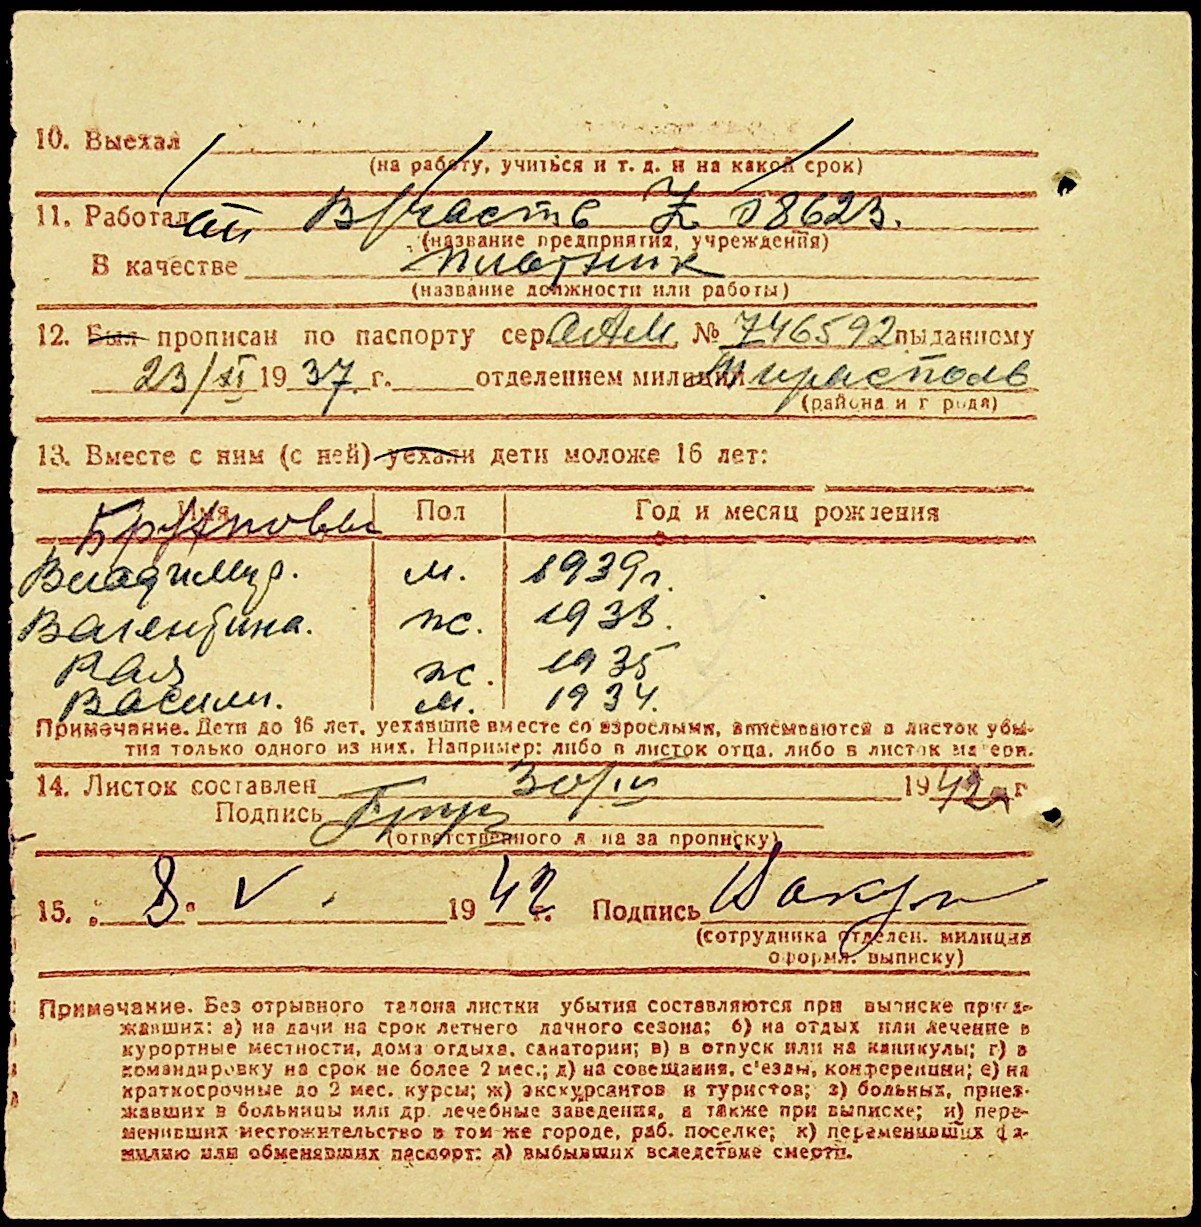 10. Выехал
(на работу, учиться и т. д. и на какой срок)
11. Работал в/часть № 18623.
(название предприятия, учреждения)
В качестве плотник
(название должности или работы)
12. Был прописан по паспорту сер. ОАМ № 746592 выданному
23/XI 1937 г. отделением милиции Тирасполь
(района и города)
13. Вместе с ним (с ней) уехали дети моложе 16 лет:
Имя Пол Год и месяц рождения
Владимир. м. 1939г.
Валентина. ж. 1938.
Рая ж. 1935
Василий. м. 1934.
Примечание. Дети до 16 лет, уехавшие вместе со взрослыми, вписываются в листок убы-
тия только одного из них. Например: либо в листок отца, либо в листок матери.
14. Листок составлен 30/IV 1942 г
Подпись
(ответственного лица за прописку)
15. „8“ V. 1942 г. Подпись
(сотрудника отделен. милиции
оформл. выписку)
Примечание. Без отрывного талона листки убытия составляются при выписке приез-
жавших: а) на дачи на срок летнего дачного сезона; б) на отдых или лечение в
курортные местности, дома отдыха, санатории; в) в отпуск или на каникулы; г) в
командировку на срок не более 2 мес.; д) на совещания, с'езды, конференции; е) на
краткосрочные до 2 мес. курсы; ж) экскурсантов и туристов; з) больных, приез-
жавших в больницы или др. лечебные заведения, а также при выписке; и) пере-
менивших местожительство в том же городе, раб. поселке; к) переменивших фа-
милию или обменявших паспорт; л) выбывших вследствие смерти.